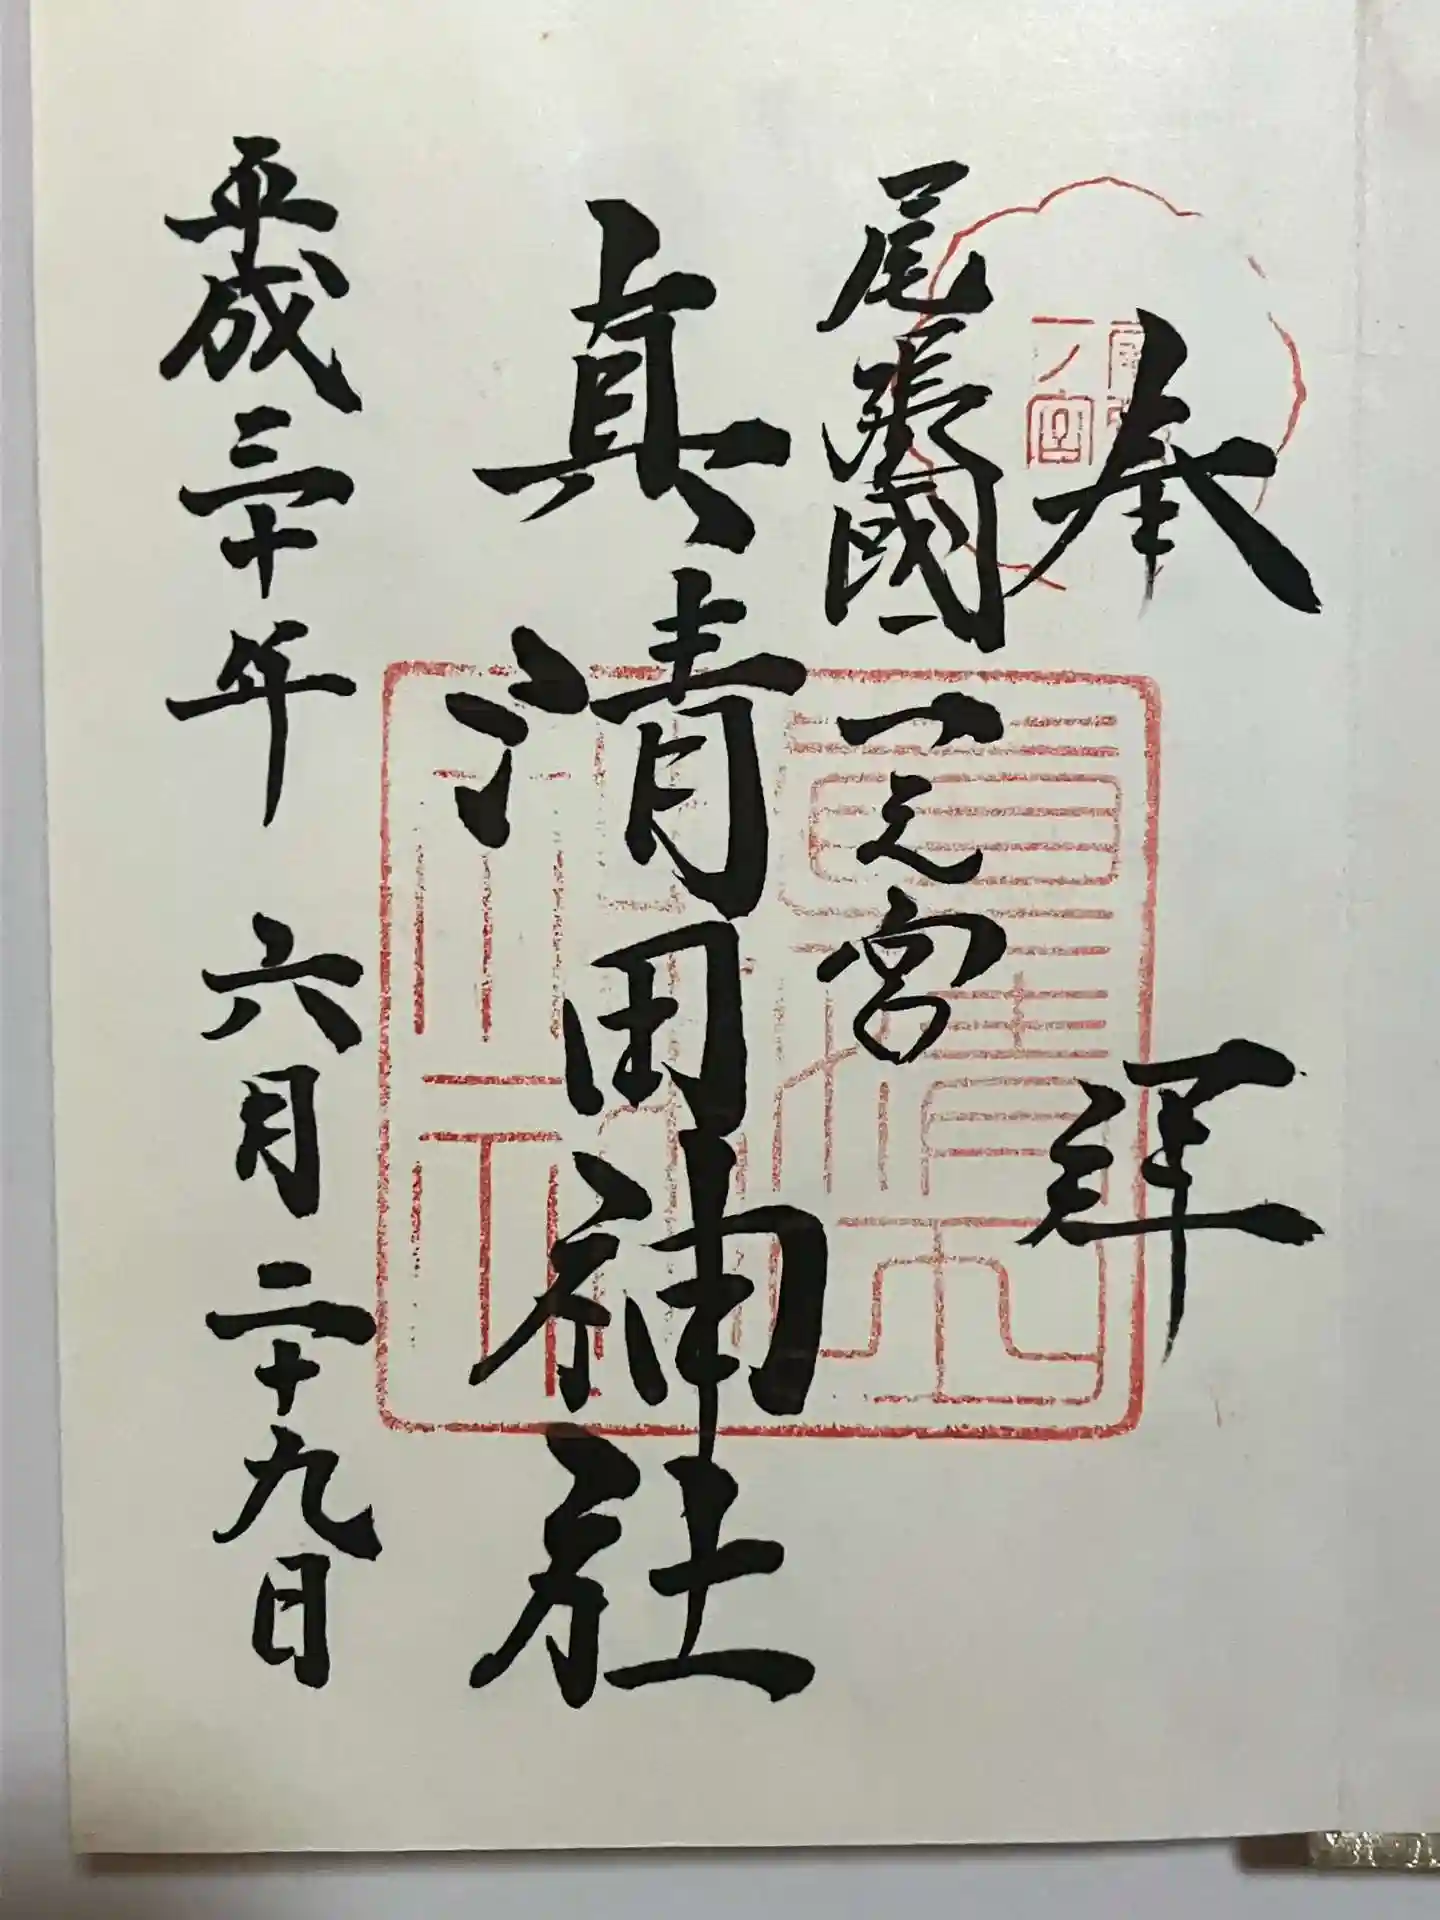 奉拝
尾張國一之宮
真清田神社
平成三十年 六月二十九日
尾張
一ノ宮
真清田
神社